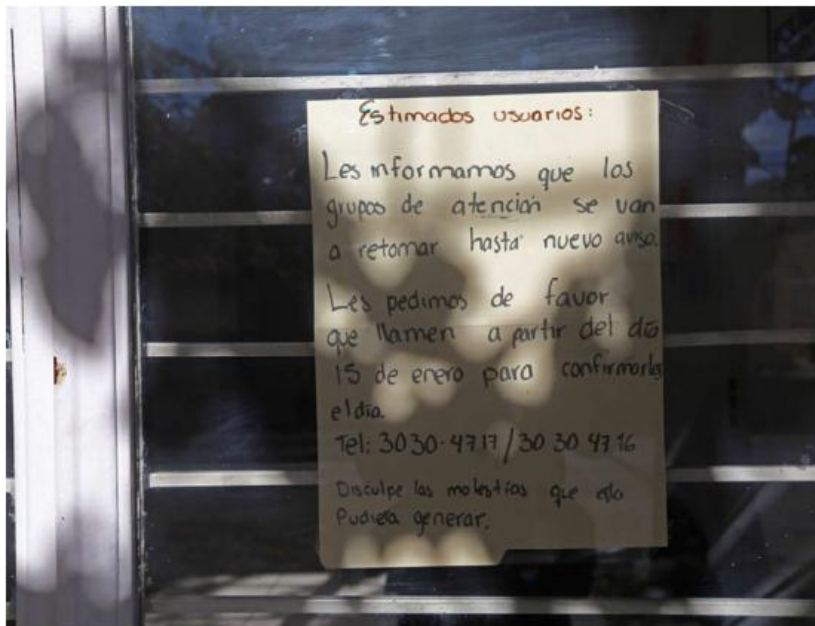 Estimados usuarios:
Les informamos que los
grupos de atención se van
a retomar hasta nuevo aviso.
Les pedimos de favor
que llamen a partir del día
15 de enero para confirmarles
el día.
Tel: 3030-4717/30 30 47 16
Disculpe las molestias que esto
Pudiera generar.